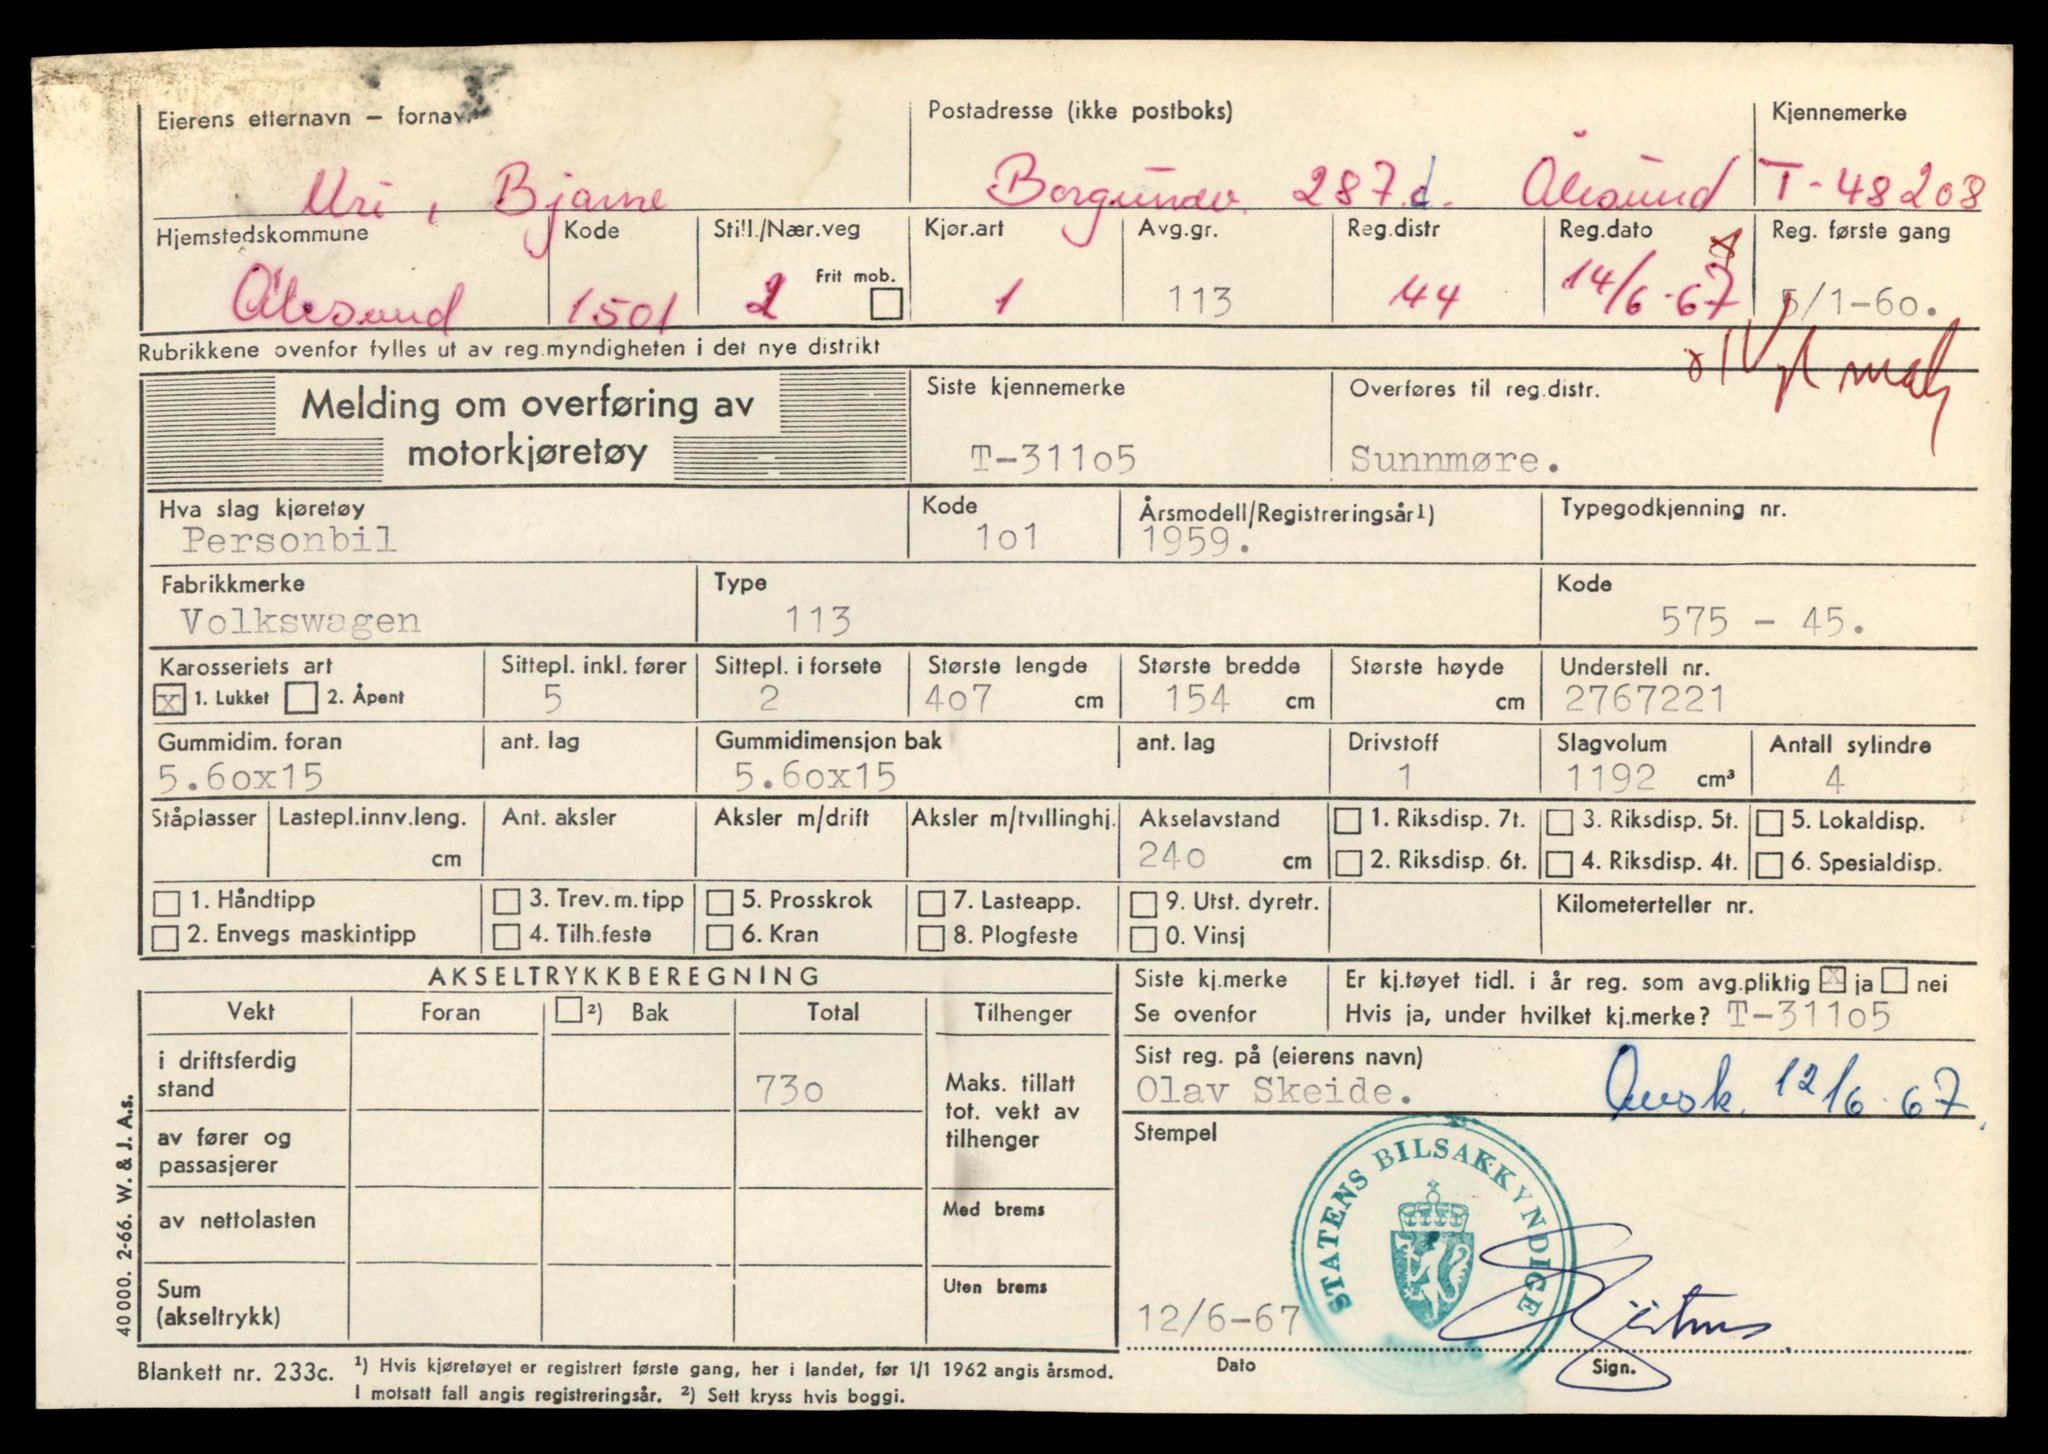 Eierens etternavn – fornavn Postadresse (ikke postboks) Kjennemerke
Uri, Bjarne Borgundv. 287.d. Ålesund T-48208
Hjemstedskommune Kode Still./Nær.veg Kjør.art Avg.gr. Reg.distr Reg.dato Reg. første gang
Frit mob.
Ålesund 1501 2 1 113 44 14/6-67 5/1-60.
Rubrikkene ovenfor fylles ut av reg.myndigheten i det nye distrikt
Melding om overføring av
motorkjøretøy
Siste kjennemerke Overføres til reg.distr.
T-31105 Sunnmøre.
Hva slag kjøretøy Kode Årsmodell/Registreringsår1) Typegodkjenning nr.
Personbil 101 1959.
Fabrikkmerke Type Kode
Volkswagen 113 575 - 45.
Karosseriets art Sittepl. inkl. fører Sittepl. i forsete Største lengde Største bredde Største høyde Understell nr.
x 1. Lukket 2. Åpent 5 2 407 cm 154 cm cm 2767221
Gummidim. foran ant. lag Gummidimensjon bak ant. lag Drivstoff Slagvolum Antall sylindre
5.60x15 5.60x15 1 1192 cm³ 4
Ståplasser Lastepl.innv.leng. Ant. aksler Aksler m/drift Aksler m/tvillinghj. Akselavstand 1. Riksdisp. 7t. 3. Riksdisp. 5t. 5. Lokaldisp.
cm 240 cm 2. Riksdisp. 6t. 4. Riksdisp. 4t. 6. Spesialdisp.
1. Håndtipp 3. Trev. m. tipp 5. Prosskrok 7. Lasteapp. 9. Utst. dyretr. Kilometerteller nr.
2. Envegs maskintipp 4. Tilh.feste 6. Kran 8. Plogfeste 0. Vinsj
AKSELTRYKKBEREGNING
Vekt Foran 2) Bak Total Tilhenger
i driftsferdig
stand 730
Maks. tillatt
tot. vekt av
tilhenger
av fører og
passasjerer
av nettolasten Med brems
Sum
(akseltrykk) Uten brems
Siste kj.merke Er kj.tøyet tidl. i år reg. som avg.pliktig x ja nei
Se ovenfor Hvis ja, under hvilket kj.merke? T-31105
Sist reg. på (eierens navn)
Olav Skeide. Avsk. 12/6-67.
Stempel
STATENS BILSAKKYNDIGE
12/6-67
Dato Sign.
40 000. 2-66. W. & J. A.s.
Blankett nr. 233c. 1) Hvis kjøretøyet er registrert første gang, her i landet, før 1/1 1962 angis årsmod.
I motsatt fall angis registreringsår. 2) Sett kryss hvis boggi.